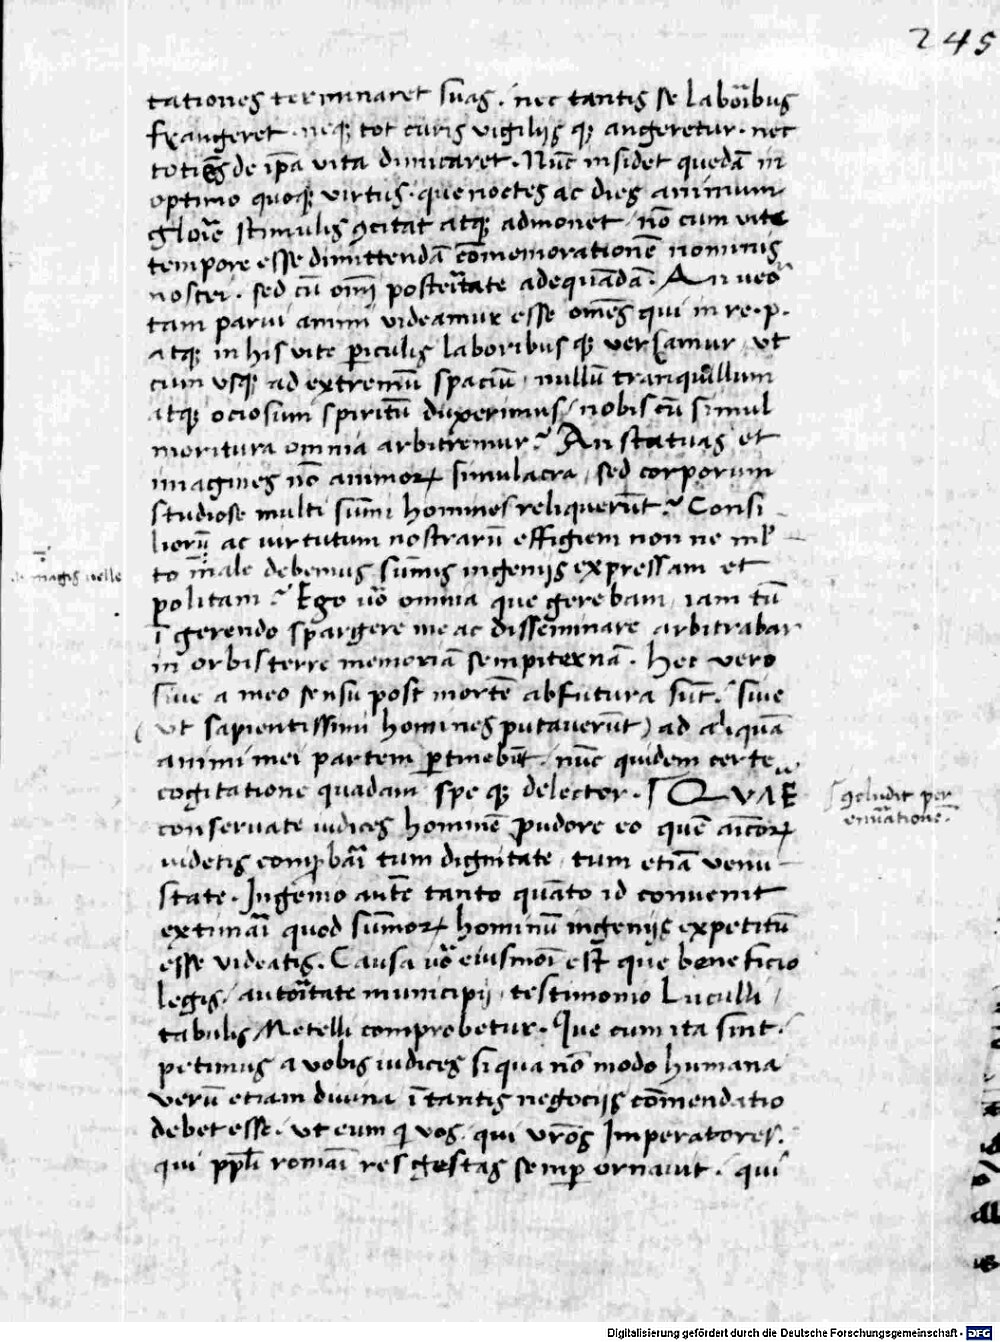 245
tationes terminaret suas / nec tantis se laboībus
frangeret · neqꝫ tot curis vigilijs qꝫ angeretur · nec
totiēs de ip̄a vita dimicaret · Nūc insidet quedā in
optimo quoqꝫ virtus · que noctes ac dies animum
glor̄ie stimulis ꝯcitat atqꝫ admonet / nō cum vite
tempore esse dimittendā cōmemorationē nominis
nostri · sed cū om̄i posteītate adequādā · An veō
tam parui animi videamur esse om̄es qui in re · p ·
atqꝫ in his vite ꝑiculis laboribus qꝫ versamur / vt
cum vsqꝫ ad extremū spaciū / nullū tranquillum
atqꝫ ociosum spiritū duxerimus / nobis cū simul
moritura omnia arbitremur? An statuas et
imagines nō animoꝝ simulacra / sed corporum
studiose multi sūmi homines reliquerūt? Consi
lioꝝ ac virtutum nostrarū effigiem non ne ml'
to male debemus sūmis ingenijs expressam et
magis nelle
politam? Ego v̄o omnia que gerebam / iam tū
ī gerendo spargere me ac disseminare arbitrabar
in orbis terre memoriā sempiternā · Hec vero
siue a meo sensu post mortē abfutura sūt / siue
( vt sapientissimi homines putauerūt ) ad aliquā
animi mei partem ꝑtinebūt / nūc quidem certe
cogitatione quadam spe qꝫ delector · QVAE
ꝯcludit per
enūatione ·
conseruate iudices hominē pudore eo quē aīcoꝝ
videtis comꝓbāi tum dignitate / tum etiā venu
state · Ingenio autē tanto quāto id conuenit
extimāi quod sūmoꝝ hominū ingenijs expetitū
esse videatis · Causa v̄o eiusmōi est que beneficio
legis / autoītate municipij / testimonio Luculli /
tabulis Metelli comprobetur · Que cum ita sint /
petimus a vobis iudices si qua nō modo humana
verū etiam diuina ī tantis negocijs cōmendatio
debet esse · vt eum q̄ vos · qui vr̄os Imperatores ·
qui ppl̄i romāi res gestas semꝑ ornauit / qui
Digitalisierung gefördert durch die Deutsche Forschungsgemeinschaft - DFG